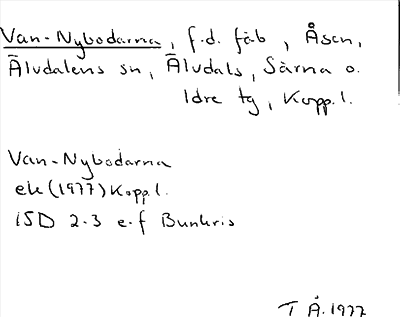 Van-Nybodarna, f.d. fäb, Åsen,
Älvdalens sn, Älvdals, Särna o.
Idre tg, Kopp.l.
Van-Nybodarna
ek (1977) Kopp.l.
ISD 2.3 e.f Bunkris
T Å. 1977